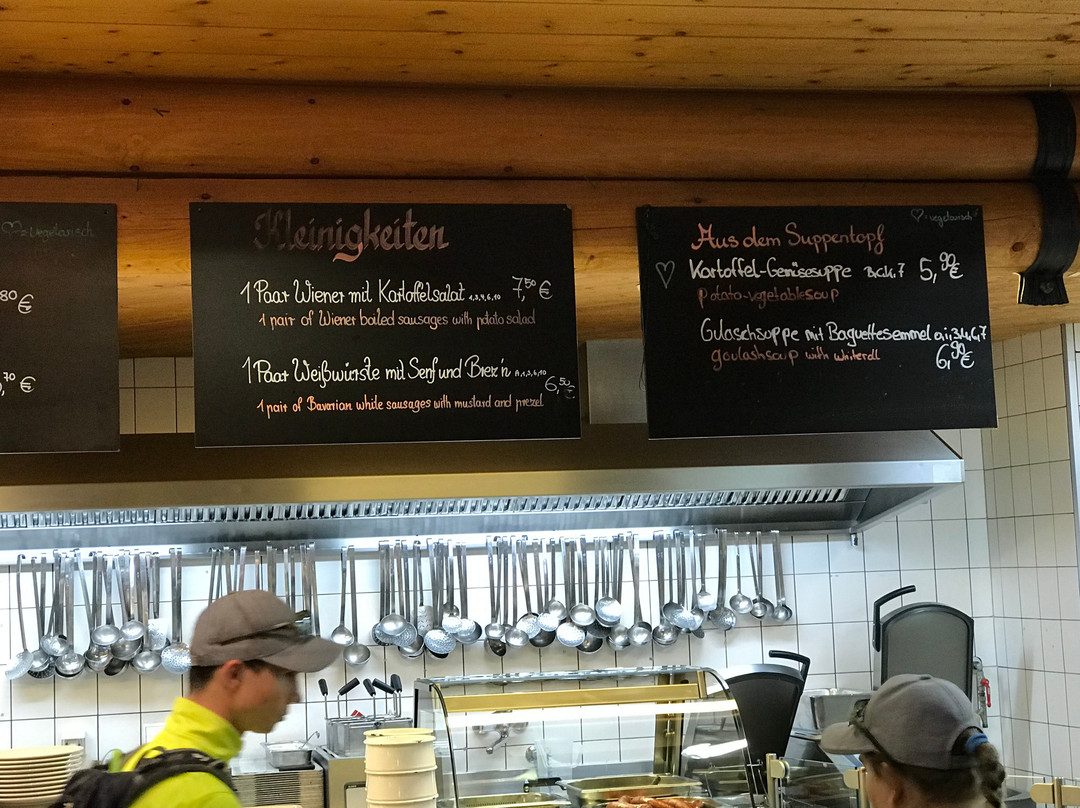 ♡ = vegetarisch
80 €
,70 €
Kleinigkeiten
1 Paar Wiener mit Kartoffelsalat 1,3,9,6,10 7,50 €
1 pair of Wiener boiled sausages with potato salad
1 Paar Weißwürste mit Senf und Brez'n A,1,3,6,10 6,50 €
1 pair of Bavarian white sausages with mustard and prezel
♡ = vegetarisch
Aus dem Suppentopf
♡ Kartoffel-Gemüsesuppe 5,90 €
potato-vegetablesoup
Gulaschsuppe mit Baguettesemmel 6,90 €
goulashsoup with whiteroll